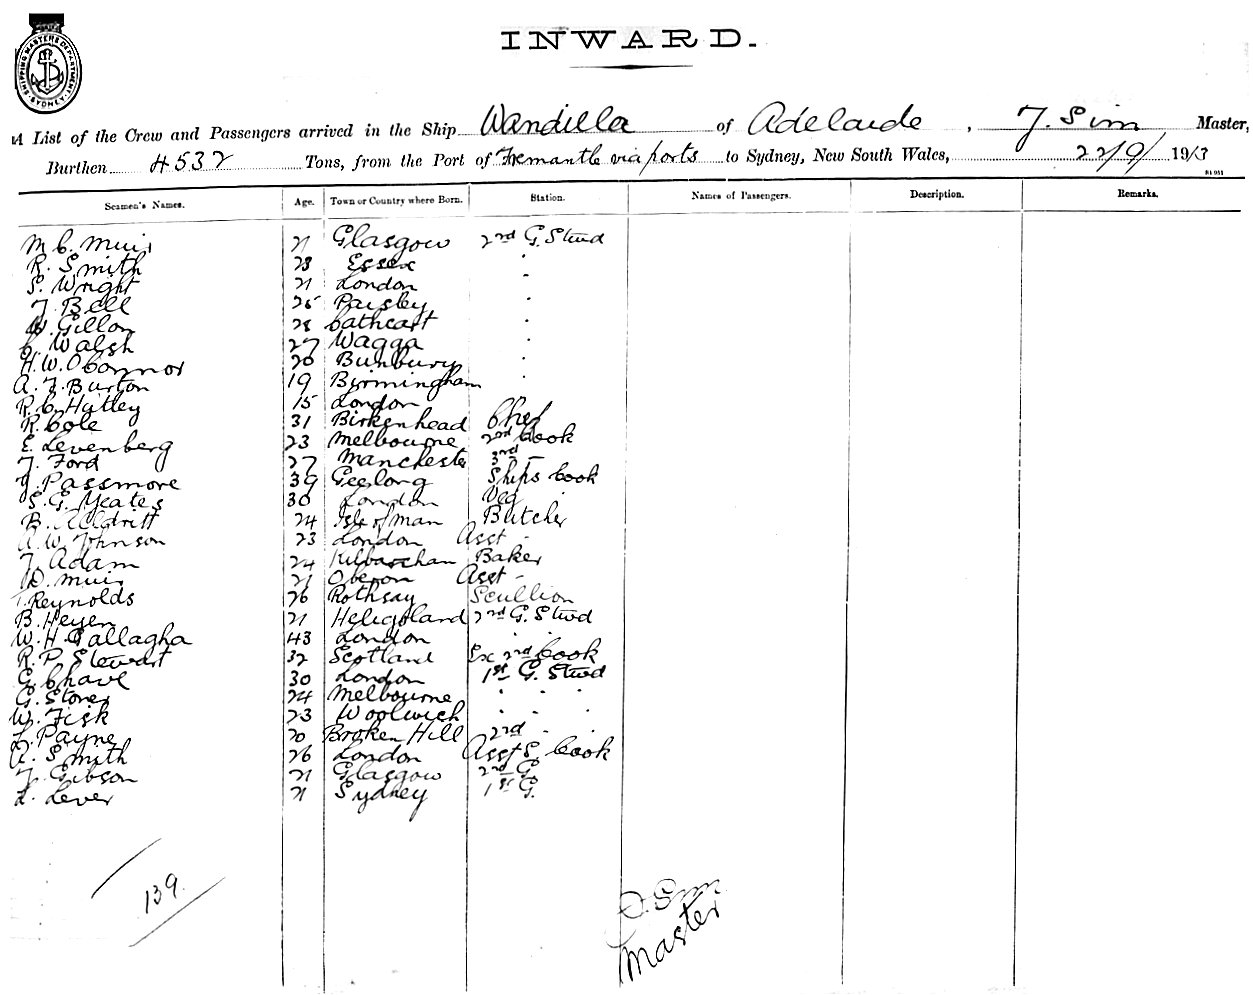 SHIPPING MASTERS DEPARTMENT SYDNEY
INWARD.
A List of the Crew and Passengers arrived in the Ship Wandilla of Adelaide, J. Sim Master,
Burthen 4532 Tons, from the Port of Fremantle via ports to Sydney, New South Wales, 22/9/1913
Seamen's Names. Age. Town or Country where Born. Station. Names of Passengers. Description. Remarks.
M C. Muir 21 Glasgow 2nd G. Stwd
R. Smith 28 Essex "
S. Wright 21 London "
J. Bell 25 Paisley "
W. Gillon 28 Cathcart "
C. Walsh 27 Wagga "
H. W. OConnor 20 Bunbury "
A. J. Burton 19 Birmingham "
R. C. Hatley 15 London
R. Cole 31 Birkenhead Chef
E. Levenberg 23 Melbourne 2nd Cook
J. Ford 27 Manchester 3rd -
J. Passmore 39 Geelong Ships Cook
S. G. Yeates 30 London Veg "
B. 24 Isle of Man Butcher
A. W. Johnson 23 London Asst -
J. Adam 24 Kilbarchan Baker
D. Muir 21 Oberon Asst -
T. Reynolds 26 Rothsay Scullion
B. Heyen 21 Heligoland 2nd G. Stwd
W. H. Gallagha 43 London " "
R. P. Stewart 32 Scotland Ex 2nd Cook
G. Chave 30 London 1st G. Stwd
G. Stone 24 Melbourne " " "
W. Fisk 23 Woolwich " " "
L. Payne 20 Broken Hill 2nd " "
A. Smith 26 London Asst S. Cook
J. Gibson 21 Glasgow 2nd G.
L. Lever 21 Sydney 1st G.
139.
J. Sim
Master